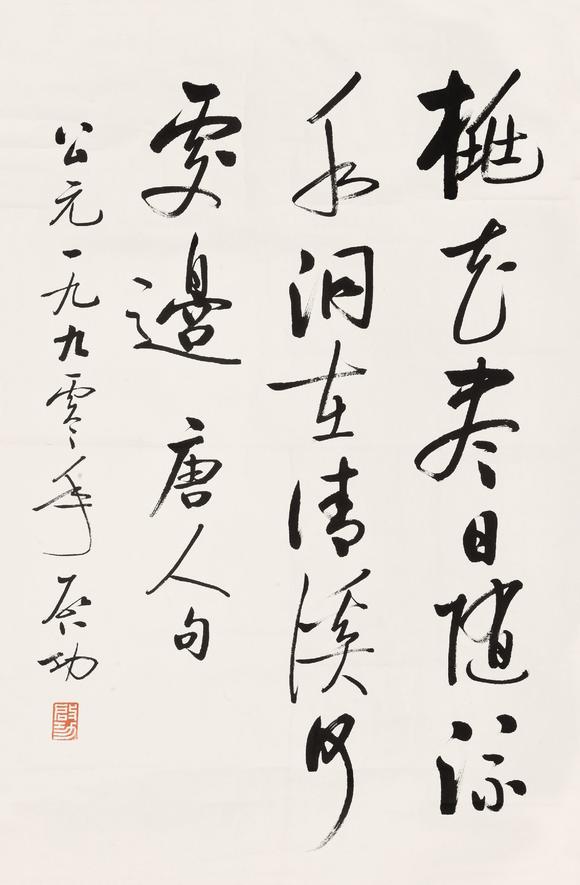 桃花尽日随流
水洞在清溪何
處邊 唐人句
公元一九九零年 启功
啟功